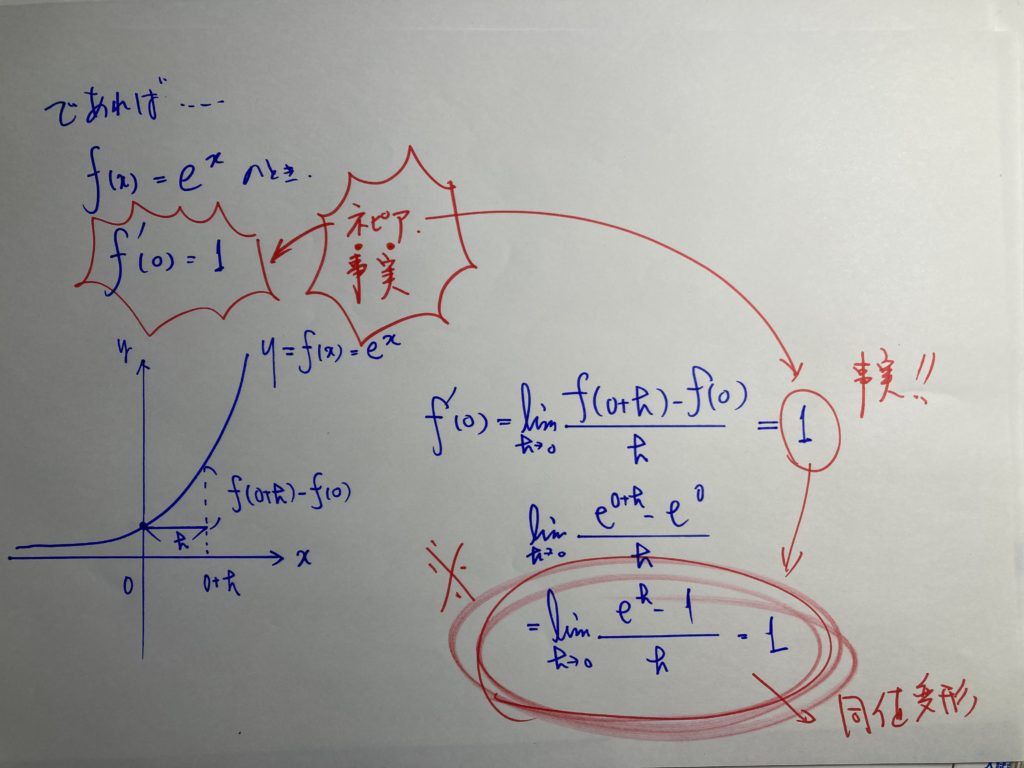 であれば‥‥
f(x) = e^x のとき.
f'(0) = 1
ネピア.
事実
y = f(x) = e^x
y
f(0+h)-f(0)
h
x
0
0+h
f'(0) = lim h→0 f(0+h)-f(0) / h = 1
事実!!
lim h→0 e^{0+h} - e^0 / h
※
= lim h→0 e^h - 1 / h = 1
同値変形